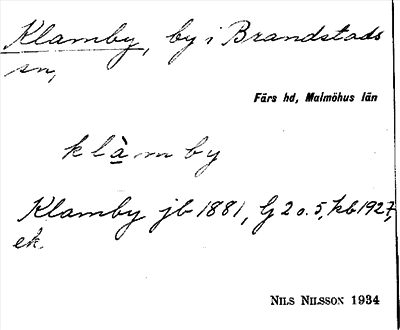 Klamby, by i Brandstads
sn,
Färs hd, Malmöhus län
klàmby
Klamby jb 1881, G 2 o. 5, kb 1927,
ek.
NILS NILSSON 1934